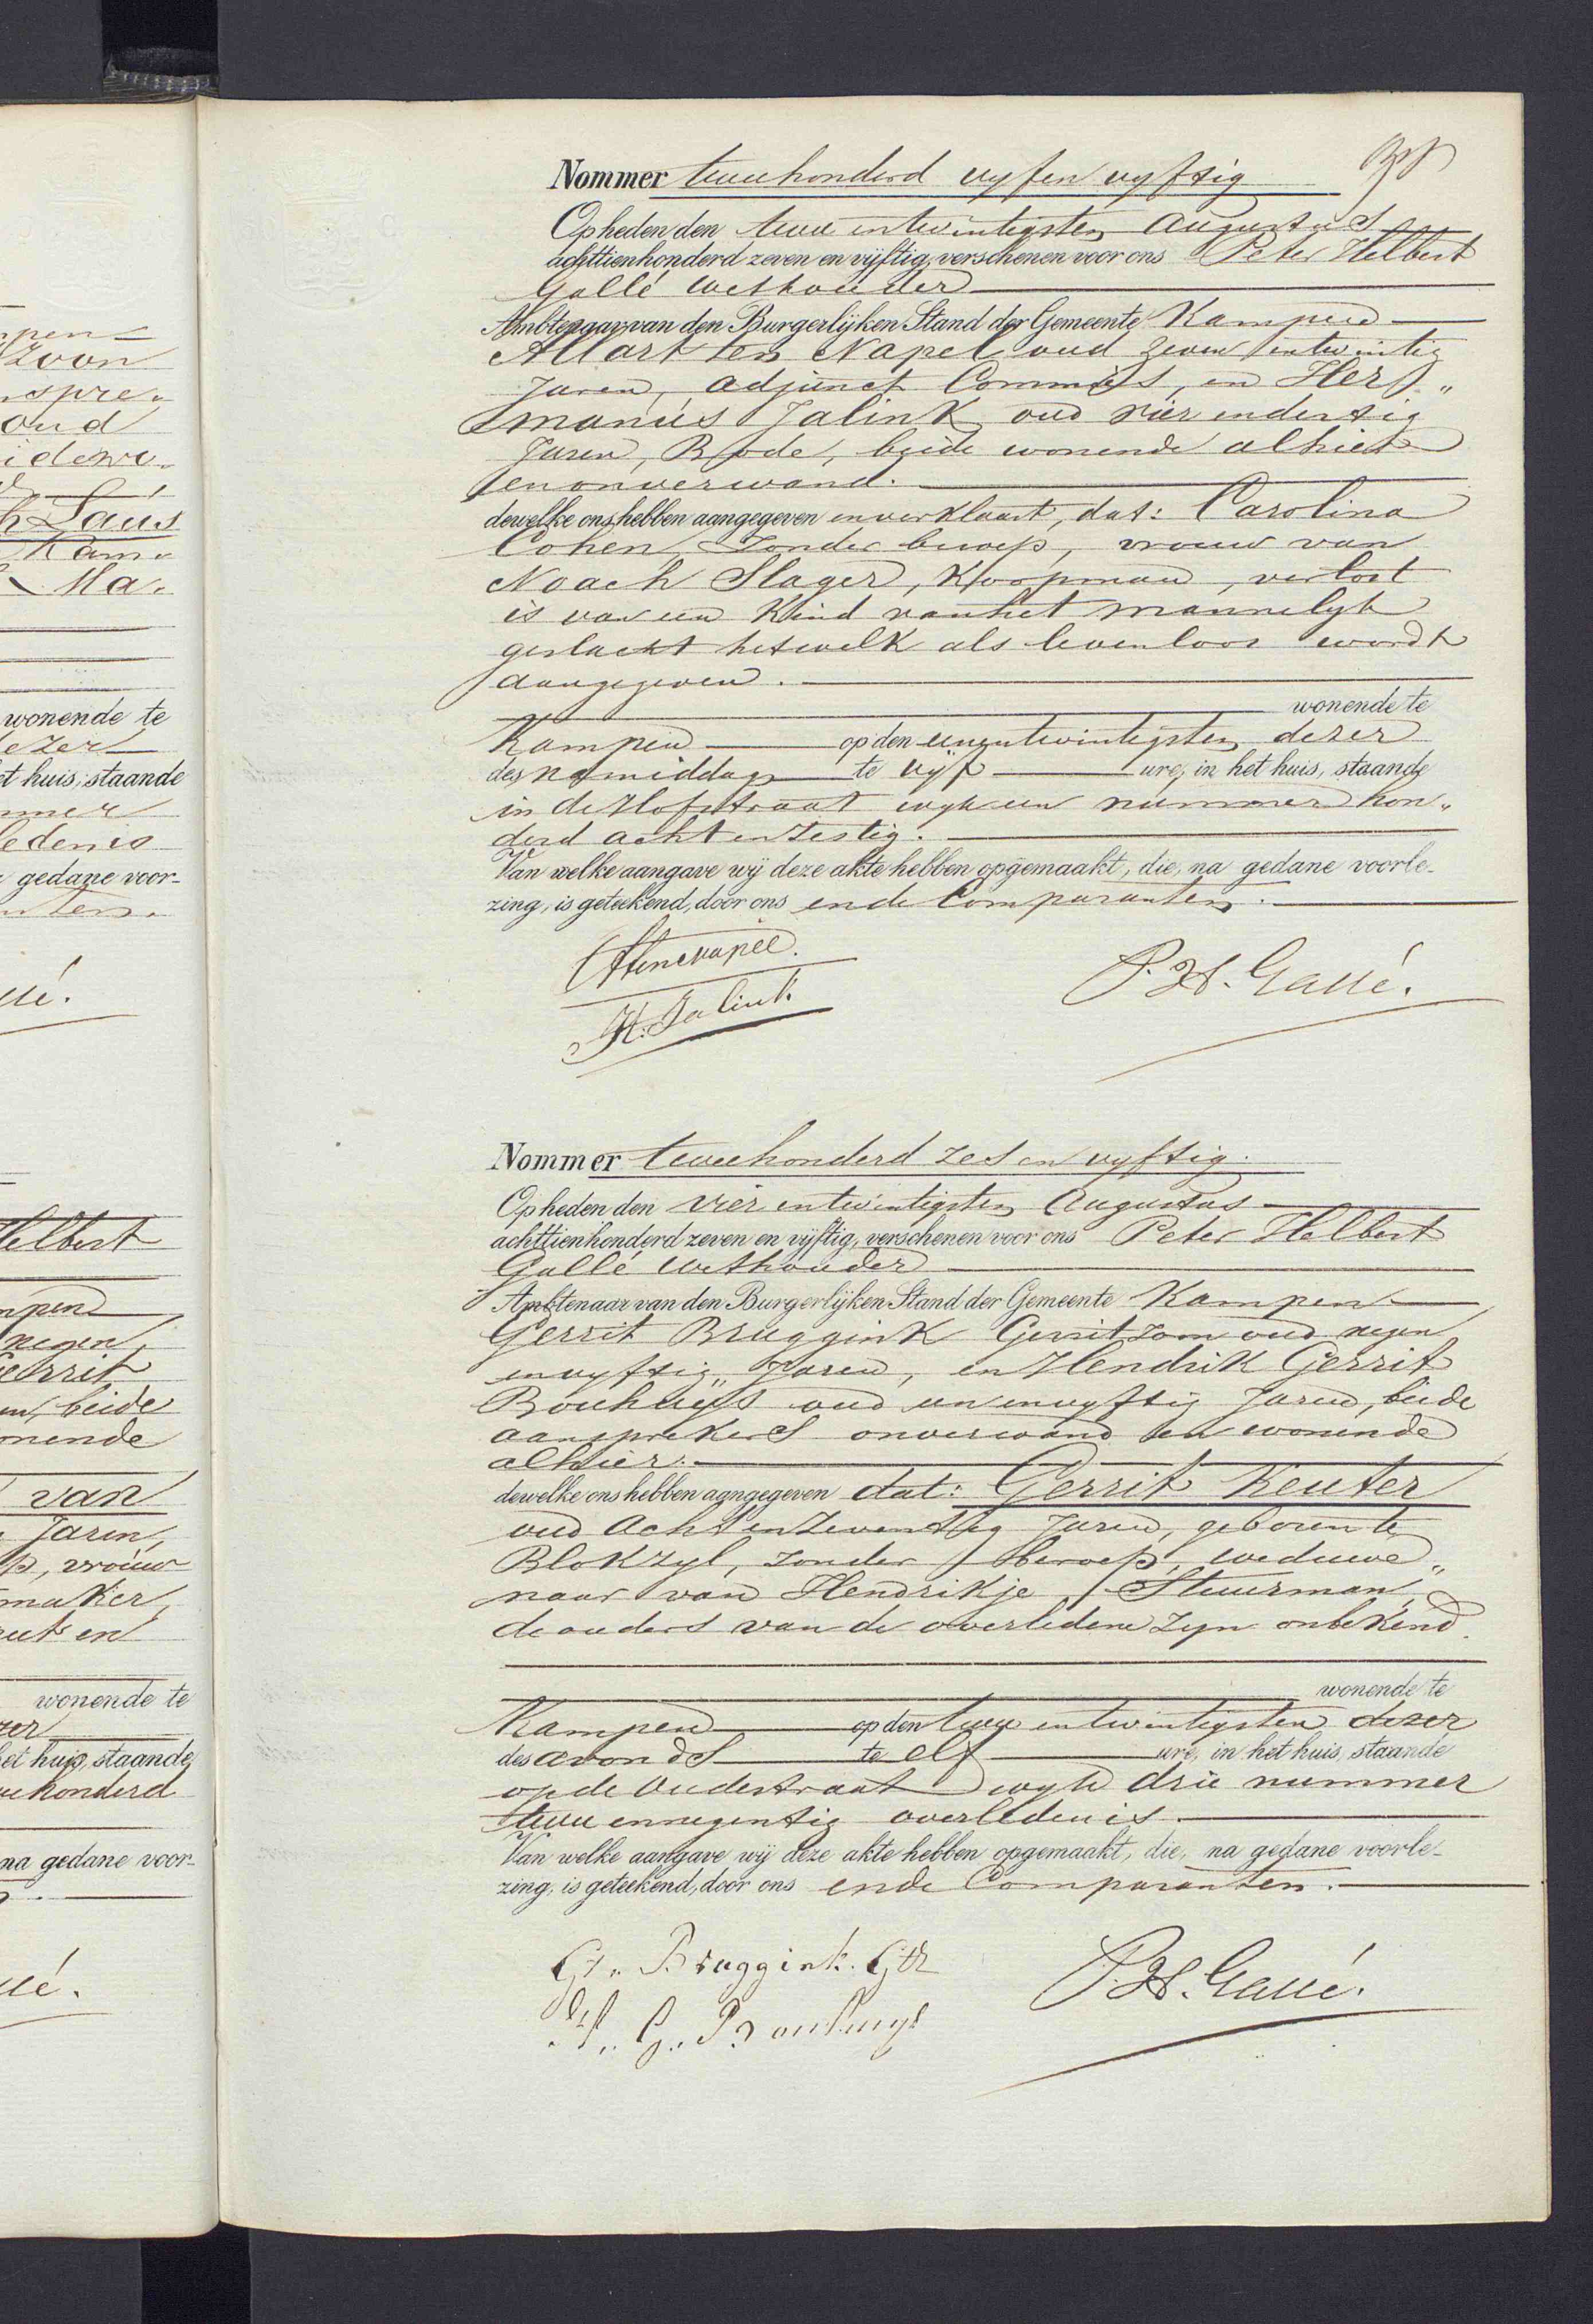 pen
zoon
spre„
oud
idewe„
h Saus
Kam„
Ma„
wonende te
dezer
et huis, staande
mmer
ledenis
gedane voor-
nten.
llé.
Helbert
mpen
negen
Gerrit
en, beide
onende
van
Jaren,
p, vrouw
maker,
eut en
wonende te
zer
het huis, staande
eehonderd
na gedane voor-
llé.
Nommer tweehonderd vyf en vyftig
Op heden den twee en twintigsten Augustus
achttienhonderd zeven en vijftig, verschenen voor ons Peter Helbert
Gallé Wethouder
Ambtenaar van den Burgerlijken Stand der Gemeente Kampen
Allart ten Napel oud zeven en twintig
Jaren, Adjunct Commies, en Her„
manus Jalink oud vier en dertig
Jaren, Bode, beide wonende alhier
en onverwand.
dewelke ons hebben aangegeven en verklaart, dat: Carolina
Cohen, Zonder beroep, vrouw van
Noach Slager, Koopman, verlost
is van een Kind van het mannelyk
geslacht hetwelk als levenloos wordt
aangegeven.
wonende te
Kampen op den eenentwintigsten dezer
des namiddags te vyf ure, in het huis, staande
in de Hofstraat wyk een nummer hon„
derd acht en Zestig.
Van welke aangave wij deze akte hebben opgemaakt, die, na gedane voorle-
zing, is geteekend, door ons en de Comparanten.
A ten Napel.
H. Jalink
P. H. Gallé.
Nommer tweehonderd zes en vyftig.
Op heden den vier en twintigsten Augustus
achttienhonderd zeven en vijftig, verschenen voor ons Peter Helbert
Gallé Wethouder
Ambtenaar van den Burgerlijken Stand der Gemeente Kampen
Gerrit Bruggink Gerritzoon oud negen
en vyftig Jaren, en Hendrik Gerrit
Bouhuys oud een en vyftig Jaren, beide
aansprekers onverwand en wonende
alhier.
dewelke ons hebben aangegeven dat: Gerrit Keuter
oud Acht en Zeventig Jaren, geboren te
Blokzyl, zonder beroep, weduwe„
naar van Hendrikje Stuurman,
de ouders van de overledene zyn onbekend.
wonende te
Kampen op den twee en twintigsten dezer
des avonds te elf ure, in het huis, staande
op de Oudestraat wyk drie nummer
twee en negentig overleden is.
Van welke aangave wij deze akte hebben opgemaakt, die, na gedane voorle-
zing, is geteekend, door ons en de Comparanten.
Gt. Bruggink. Gtz
H. G. Bouhuys
P. H. Gallé.